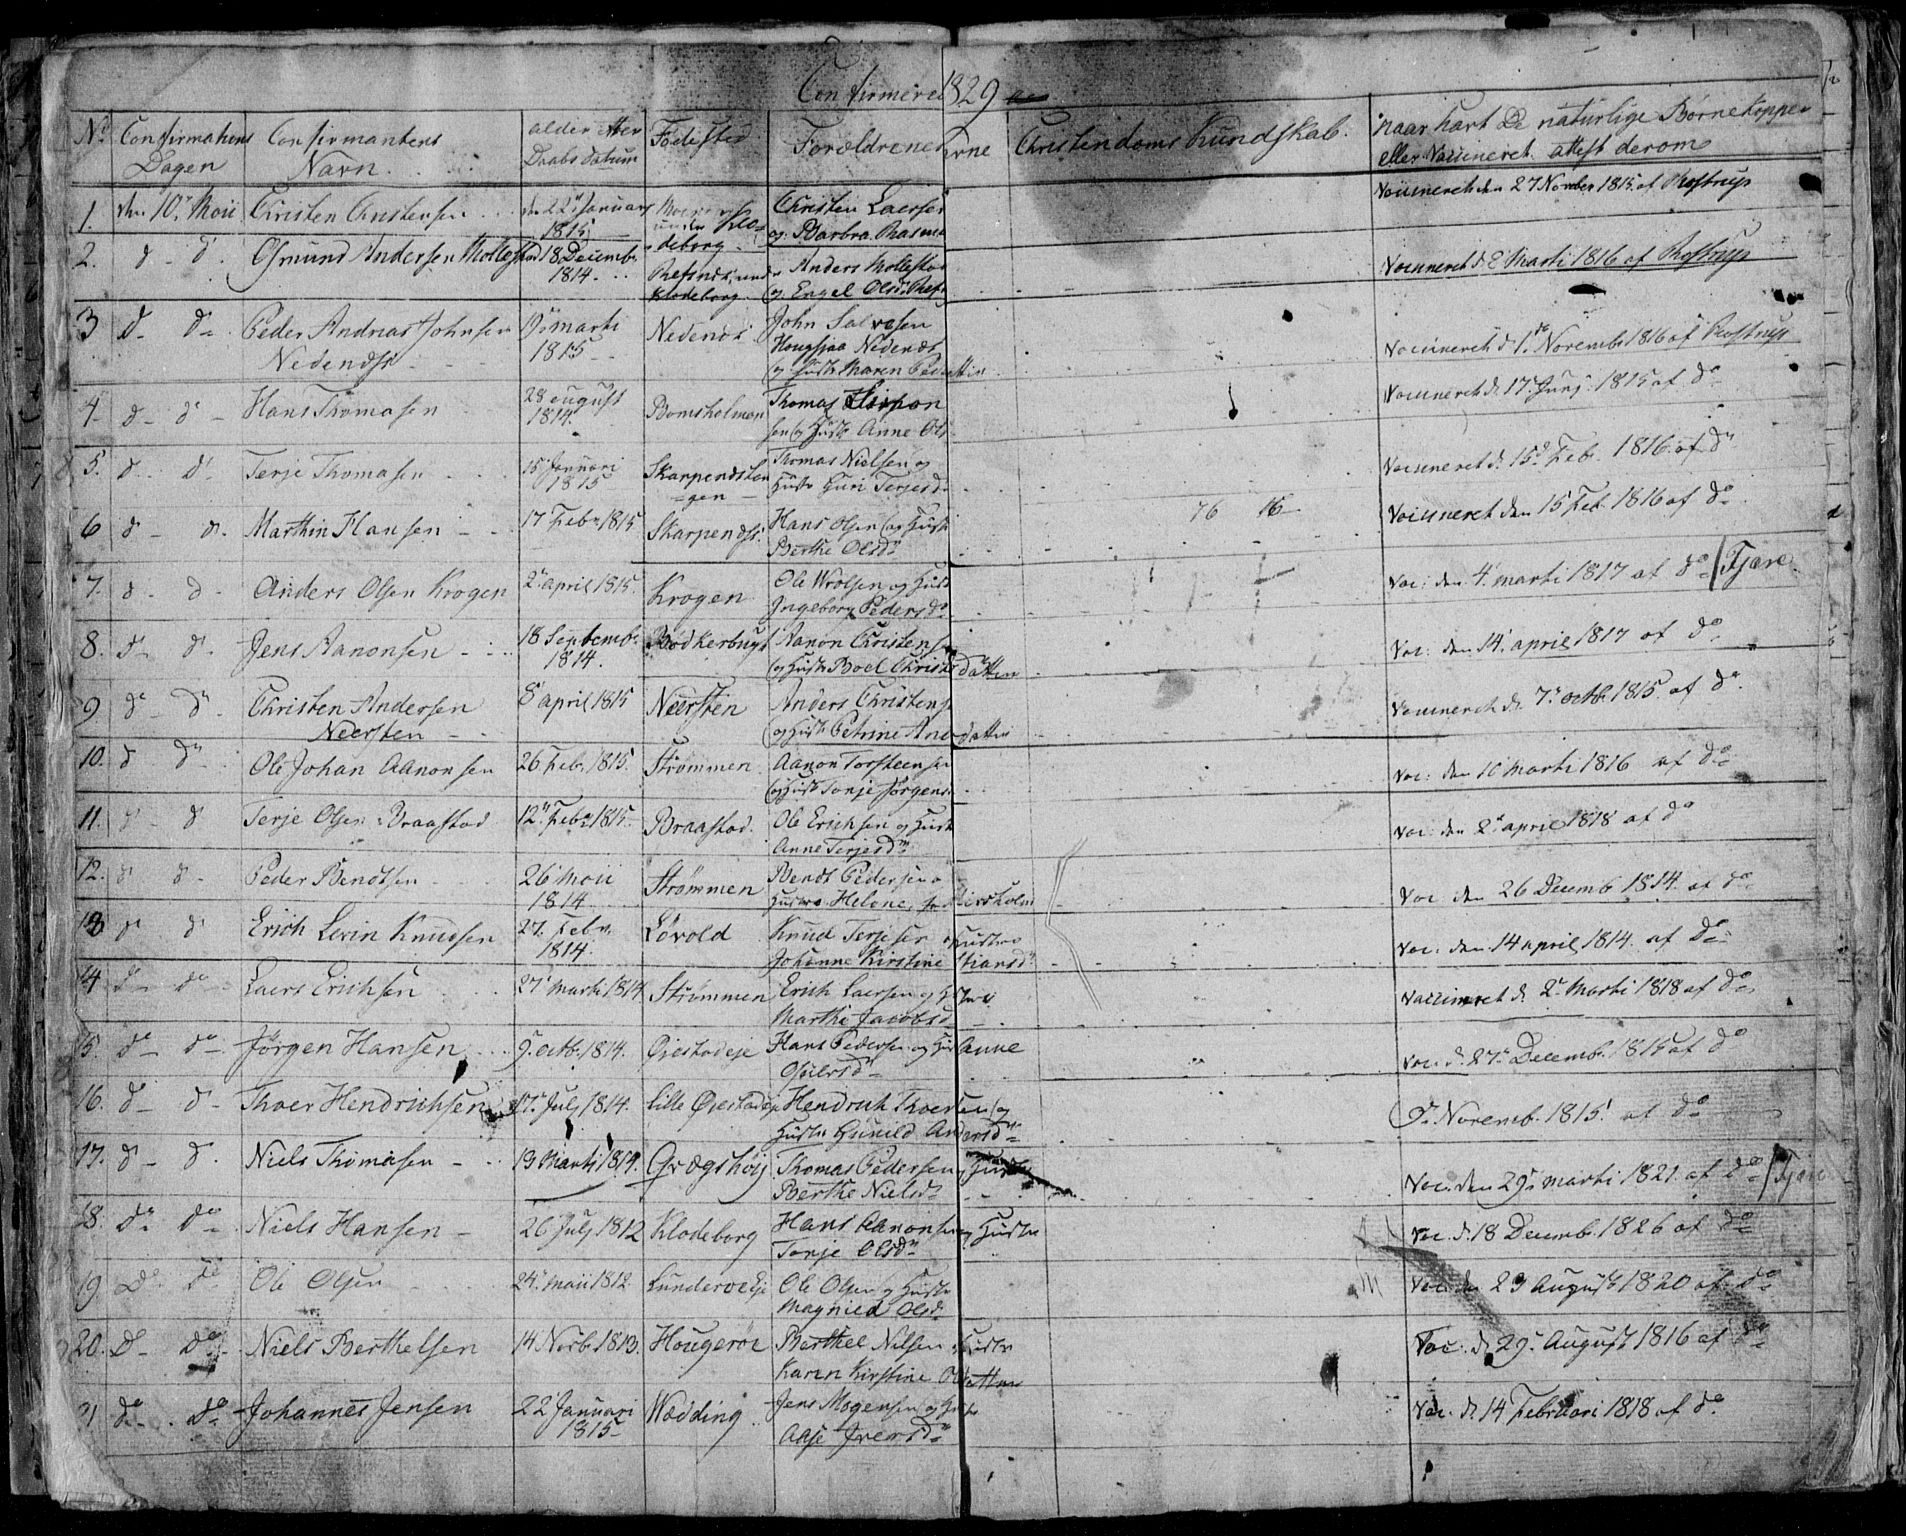 Confirmerede 1829
No Confirmations Dagen Confirmantens Navn alder etter Daabs datum Fødested Forældrenes Christendoms Kundskab. naar hart De naturlige Børnekopper eller Vaccineret attest derom
1. den 10de Maii Christen Christensen den 22de Januari 1815 under Klodeborg Christen Laersen og Barbra Rasmus Vaccineret den 27 Novbr 1815 af Rostrup
2. d - d. Osmund Andersen Mollestad 18 Decembr. 1814. Refsnes under Klodeborg. Anders Mollestad og Engel Olsd. Vaccineret d 2 Marti 1816 af Rostrup
3 do do Peder Andreas Johnsen Nedenæs 19 marti 1815 Nedenæs John Salvesen Nedenæs og Hustr Maren Pedersdatter Vaccineret d 1ste Novembr 1816 af Rostrup
4. d - do - Hans Thomasen 28 august 1814. Bomsholmen Thomas Simonsen og Hustr Anne Ols Vaccineret d. 17 Junj 1815 af do
5. d. d. Terje Thomasen 15 Januari 1815 Skarpenæstangen Thomas Nielsen og Hustr Guri Terjesd. Vaccineret d. 15d Feb. 1816. af do
6 d - d. Marthin Hansen 17 Febr 1815 Skarpenæs. Hans Olsen og Hustr Berthe Olsdr 76 16 Vaccineret den 15 Feb 1816 af do
7. d. d. Anders Olsen Krogen 2 april 1815. Krogen Ole Wrolsen og Hustr Ingeborg Pedersdr Vac: den 4 marti 1817 af do / Fjære.
8. d - d. Jens Aanonsen 18 Septembr. 1814. Bødkerbugt Aanon Christensen og Hustr Boel Christensdatter Vac: den 14 april 1817 af do
9 do - do. Christen Andersen Neersten 8 april 1815 Neersten Anders Christens og Hustr Petrine Anersdatter Vaccineret d. 7 octb 1815. af do.
10. d do Ole Johan Aanonsen 26 Feb. 1815. Strømmen Aanon Torsteensen og Hustr Tonje Jørgens Vac: den 10 Marti 1816 af do
11. d - d Terje Olsen Braastad 12 Febr 1815. Braastad. Ole Erichsen og Hustr Anne Terjesdr Vac: den 2 april 1818 af do
12. d d - Peder Bendtsen 26 Maii 1814 Strømmen Bendt Pedersen o Hustro Helene, fra Biersholm Vac: den 26 Decemb 1814. af do
13 d d Erich Levin Knudsen 27. Febr. 1814. Løvold Knud Terjesen Hustro Johanne Kirstine Vac: den 14 april 1814. af do
14 d do Laers Erichsen 27 Marti 1814 Strømmen Erich Laersen og Hustru Marthe Jacobsd Vaccineret d 2 Marti 1818 af do
15. do - do - Jørgen Hansen 9. octb. 1814. Øiestadeje Hans Pedersen og Hus Anne Vac. d. 27 Decemb. 1815 af do
16. d - d - Thoer Hendrichsen 17. Julj 1814. Lille Øiestadeje Hendrich Thoersen og Hustr Gunild Andersdr Novemb. 1815 af do
17. d - d. Niels Thomasen 19 Marti 1814. Grægshøj Thomas Pedersen og Hustr Berthe Nielsdr Vac. den 29 marti 1821. af do / Fjære
18. do do Niels Hansen 26 Julj 1812 Klodeborg Hans Aanonsen og Hustr Tonje Olsdr Vac d. 18 Decemb. 1826 af do
19 Do do Ole Olsen 24 Maii 1812 Lundervoe Eje Ole Olsen og Hustr Magnild Olsdr Vac. den 23 August 1820 af do
20. Do - do Niels Berthelsen 14 Novb. 1813. Hougerøe Berthel Nilsen Hustr Karen Kirstine Olsdatter Vac. d 29. August 1816 af do
21 do. do Johannes Jensen 22 Januari 1815 Wædding Jens Mogensen og Hustr Aase Iversdr Vac. d. 14 Februari 1818 af do.